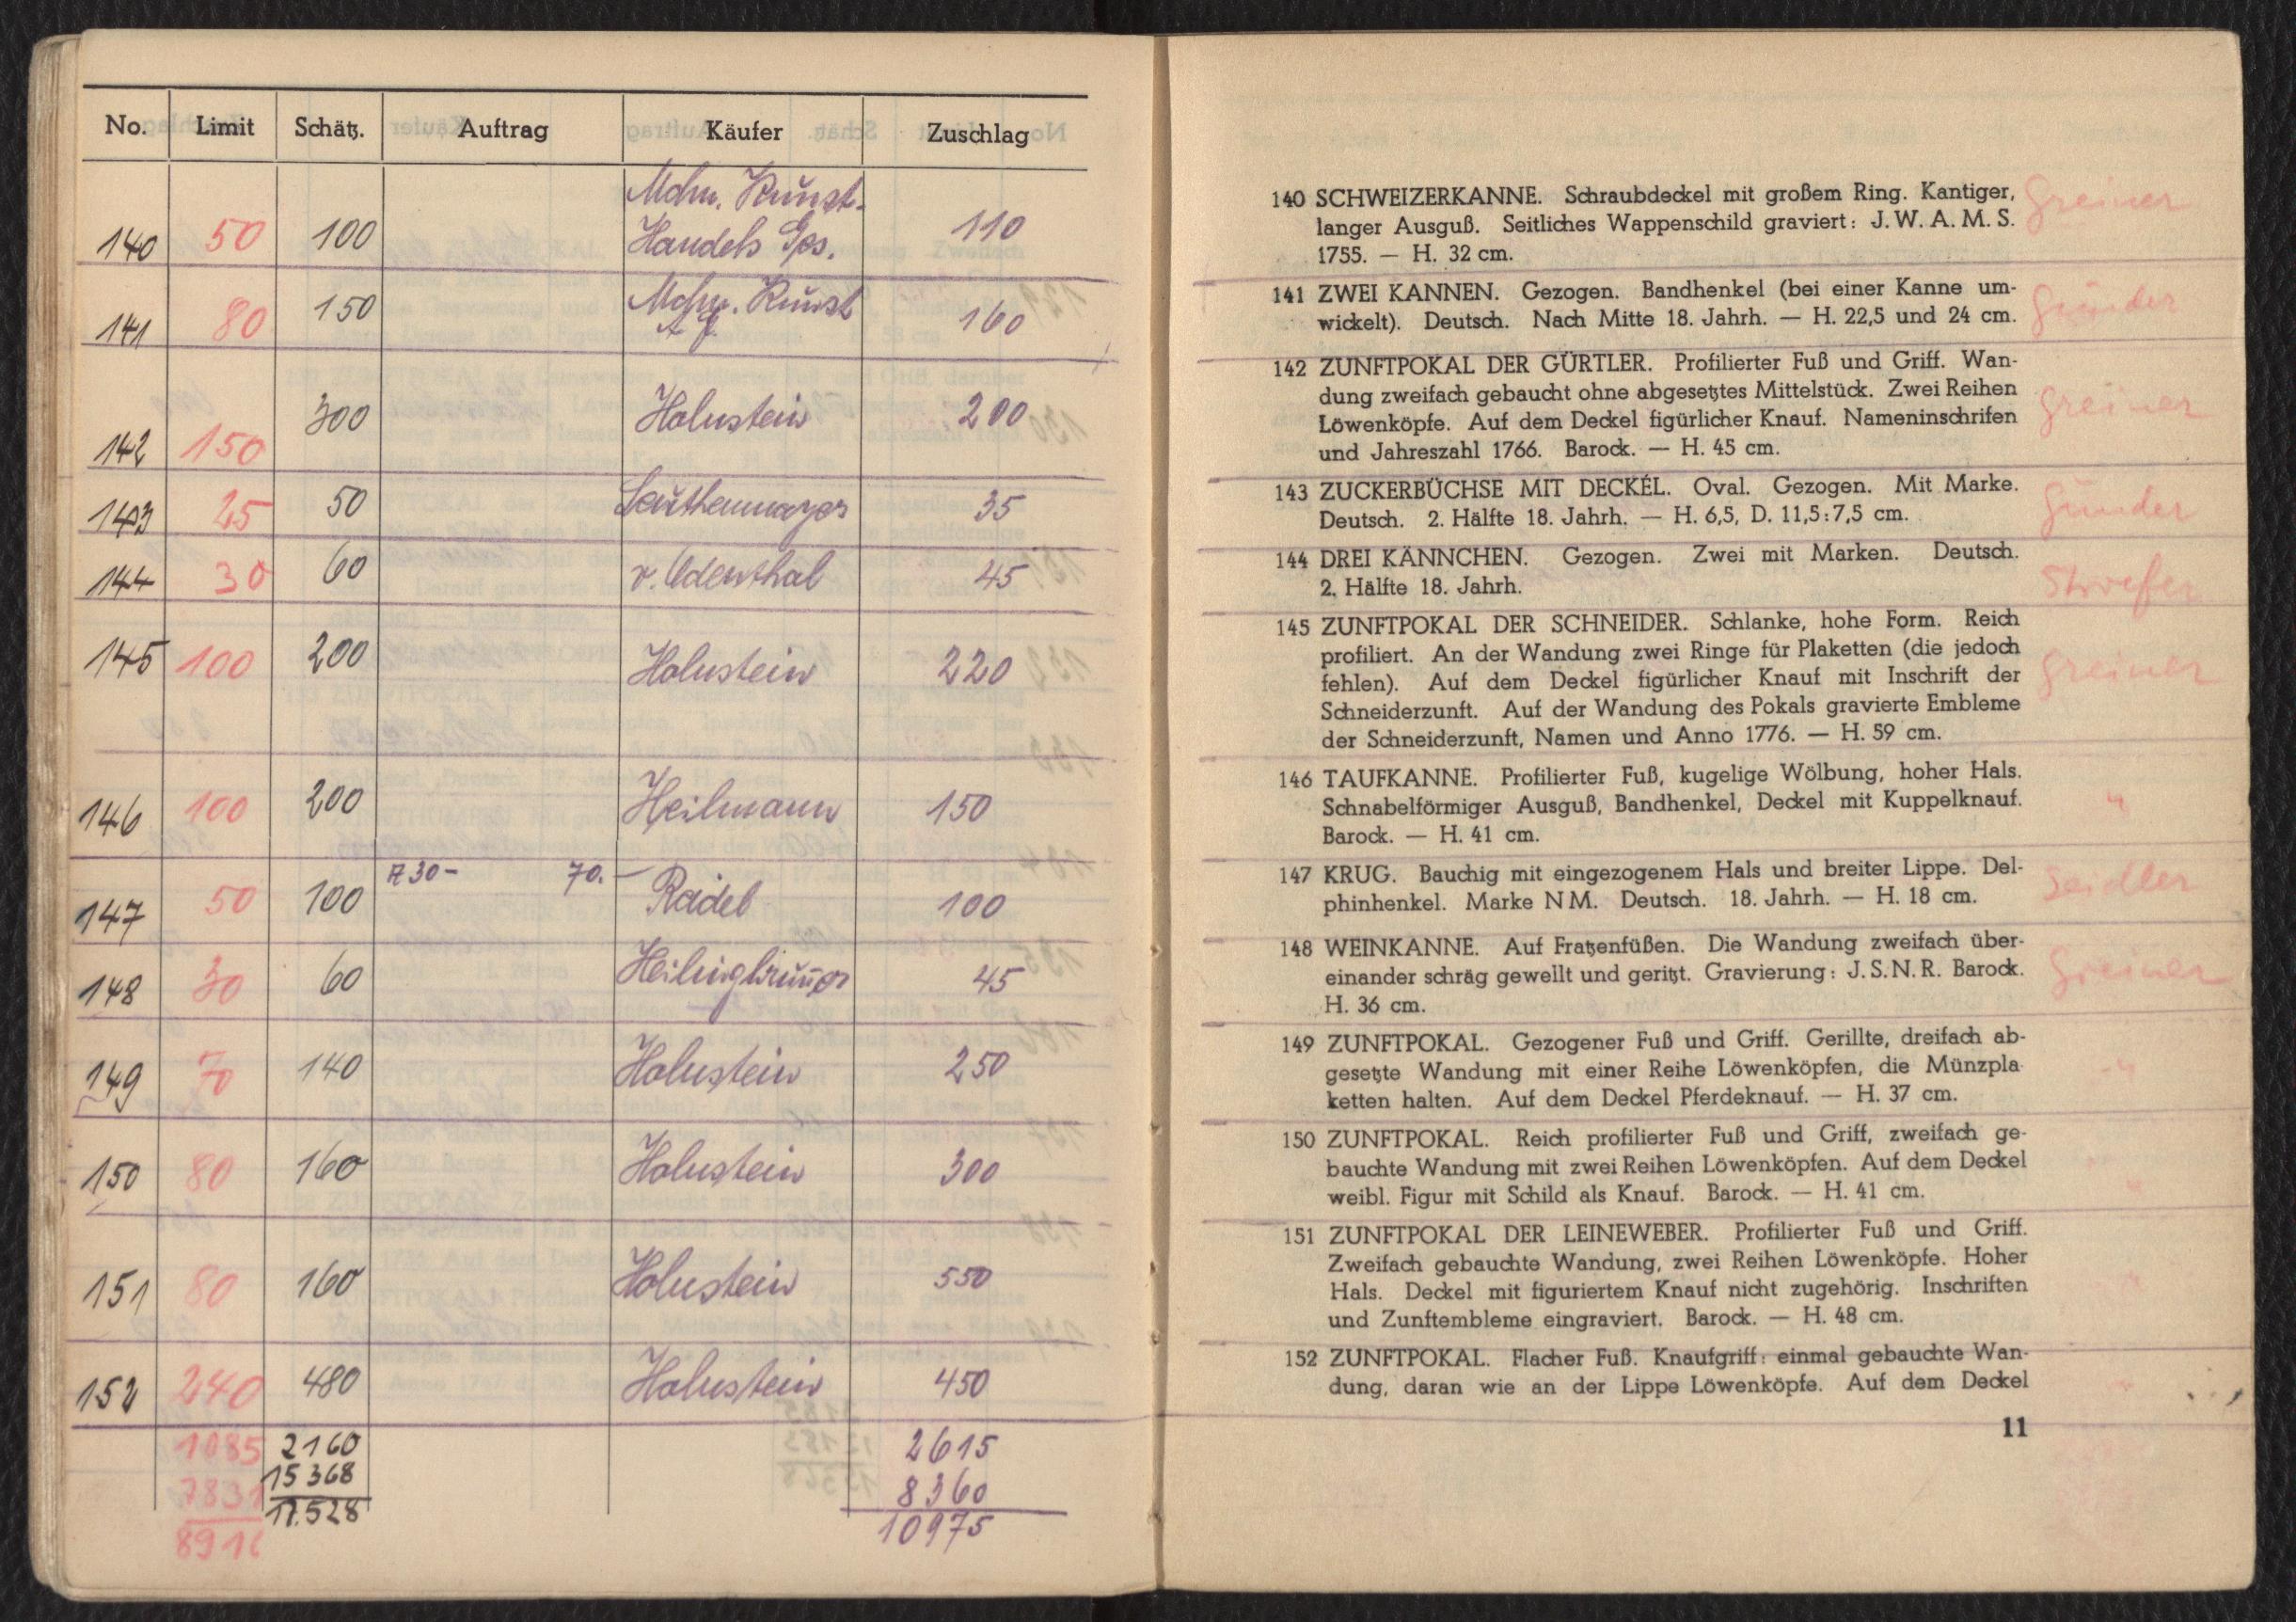 No. Limit Schätz. Auftrag Käufer Zuschlag
140 50 100 Mchn. Kunst-
Handels Ges. 110
141 80 150 Mchn. Kunst 160
142 150 300 Holnstein 200
143 25 50 Leuthenmayer 35
144 30 60 v. Odenthal 45
145 100 200 Holnstein 220
146 100 200 Heilmann 150
147 50 100 R 30- 70.- Radel 100
148 30 60 Heilingbrunner 45
149 70 140 Holnstein 250
150 80 160 Holnstein 300
151 80 160 Holnstein 550
152 240 480 Holnstein 450
1085 2160 2615
7831 15368 8360
8916 17.528 10975
140 SCHWEIZERKANNE. Schraubdeckel mit großem Ring. Kantiger, Greiner
langer Ausguß. Seitliches Wappenschild graviert: J. W. A. M. S.
1755. — H. 32 cm.
141 ZWEI KANNEN. Gezogen. Bandhenkel (bei einer Kanne um- Günder
wickelt). Deutsch. Nach Mitte 18. Jahrh. — H. 22,5 und 24 cm.
142 ZUNFTPOKAL DER GÜRTLER. Profilierter Fuß und Griff. Wan-
dung zweifach gebaucht ohne abgesetztes Mittelstück. Zwei Reihen
Löwenköpfe. Auf dem Deckel figürlicher Knauf. Nameninschrifen Greiner
und Jahreszahl 1766. Barock. — H. 45 cm.
143 ZUCKERBÜCHSE MIT DECKEL. Oval. Gezogen. Mit Marke. Günder
Deutsch. 2. Hälfte 18. Jahrh. — H. 6,5, D. 11,5:7,5 cm.
144 DREI KÄNNCHEN. Gezogen. Zwei mit Marken. Deutsch.
2. Hälfte 18. Jahrh.
145 ZUNFTPOKAL DER SCHNEIDER. Schlanke, hohe Form. Reich
profiliert. An der Wandung zwei Ringe für Plaketten (die jedoch Greiner
fehlen). Auf dem Deckel figürlicher Knauf mit Inschrift der
Schneiderzunft. Auf der Wandung des Pokals gravierte Embleme
der Schneiderzunft, Namen und Anno 1776. — H. 59 cm.
146 TAUFKANNE. Profilierter Fuß, kugelige Wölbung, hoher Hals.
Schnabelförmiger Ausguß, Bandhenkel, Deckel mit Kuppelknauf. "
Barock. — H. 41 cm.
147 KRUG. Bauchig mit eingezogenem Hals und breiter Lippe. Del- Seidler
phinhenkel. Marke N M. Deutsch. 18. Jahrh. — H. 18 cm.
148 WEINKANNE. Auf Fratzenfüßen. Die Wandung zweifach über-
einander schräg gewellt und geritzt. Gravierung: J. S. N. R. Barock. Greiner
H. 36 cm.
149 ZUNFTPOKAL. Gezogener Fuß und Griff. Gerillte, dreifach ab-
gesetzte Wandung mit einer Reihe Löwenköpfen, die Münzpla- "
ketten halten. Auf dem Deckel Pferdeknauf. — H. 37 cm.
150 ZUNFTPOKAL. Reich profilierter Fuß und Griff, zweifach ge-
bauchte Wandung mit zwei Reihen Löwenköpfen. Auf dem Deckel
weibl. Figur mit Schild als Knauf. Barock. — H. 41 cm. "
151 ZUNFTPOKAL DER LEINEWEBER. Profilierter Fuß und Griff.
Zweifach gebauchte Wandung, zwei Reihen Löwenköpfe. Hoher
Hals. Deckel mit figuriertem Knauf nicht zugehörig. Inschriften "
und Zunftembleme eingraviert. Barock. — H. 48 cm.
152 ZUNFTPOKAL. Flacher Fuß. Knaufgriff: einmal gebauchte Wan-
dung, daran wie an der Lippe Löwenköpfe. Auf dem Deckel "
11